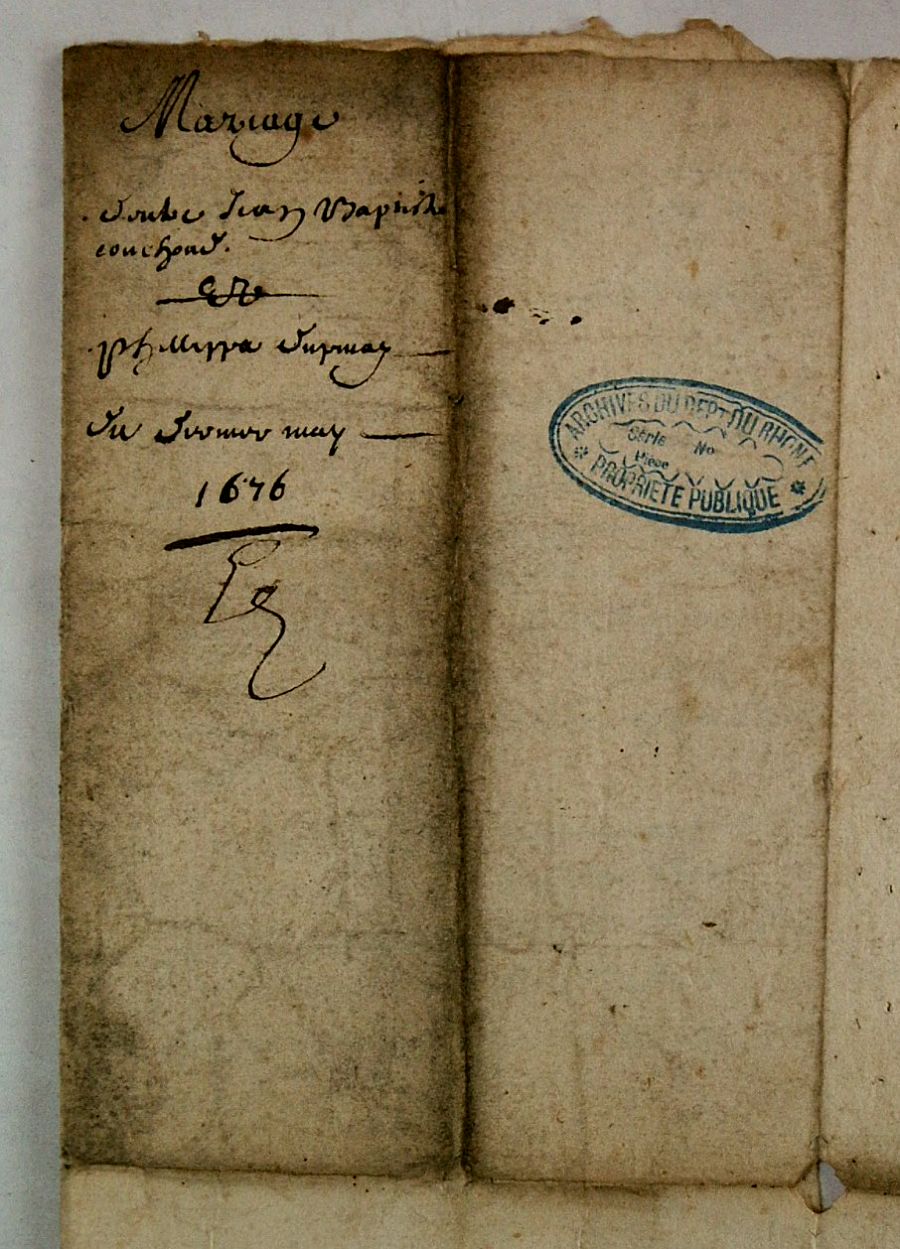 Mariage
Jean Baptiste
couchoud.
Et
phillippa
Du may
1676
ARCHIVES DU DEPT DU RHONE
Série No
Pièce
PROPRIETE PUBLIQUE